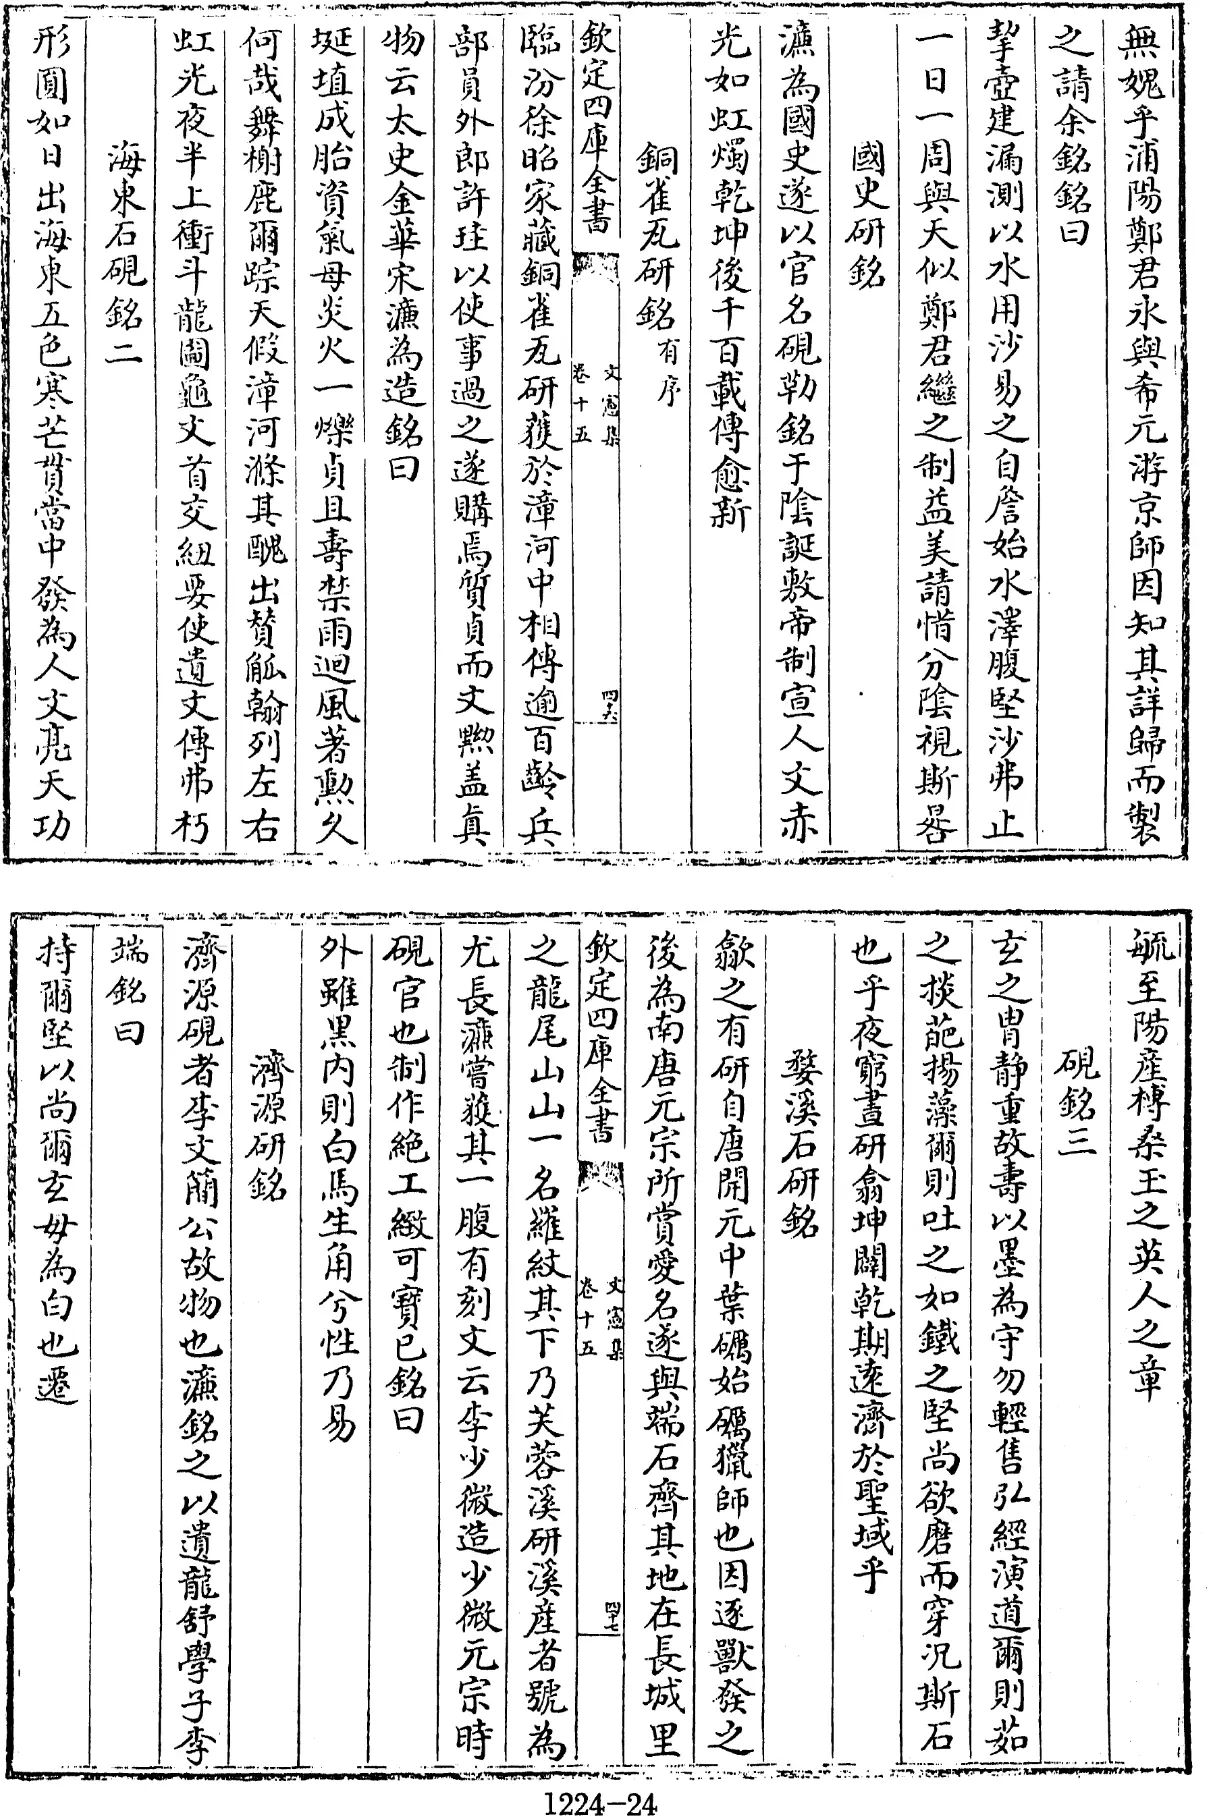 無媿乎浦陽鄭君永與希元游京師因知其詳歸而製
之請余銘銘曰
挈壺建漏測以水用沙易之自詹始水澤腹堅沙弗止
一日一周與天似鄭君繼之制益美請惜分陰視斯晷
國史研銘
濂為國史遂以官名硯勒銘于陰誕敷帝制宣人文赤
光如虹燭乾坤後千百載傳愈新
銅雀瓦研銘有序
欽定四庫全書
文憲集
卷十五
四十六
臨汾徐昭家藏銅雀瓦研獲於漳河中相傳逾百齡兵
部員外郎許珪以使事過之遂購焉質貞而文黝蓋真
物云太史金華宋濂為造銘曰
埏埴成胎資氣母炎火一爍貞且壽禁雨迴風著勲久
何哉舞榭鹿爾踪天假漳河滌其醜出贊觚翰列左右
虹光夜半上衝斗龍圖龜文首交紐要使遺文傳弗朽
海東石硯銘二
形圓如日出海東五色寒芒貫當中發為人文亮天功
毓至陽產榑桑玉之英人之章
硯銘三
玄之胄靜重故壽以墨為守勿輕售弘經演道爾則茹
之掞葩揚藻爾則吐之如鐵之堅尚欲磨而穿况斯石
也乎夜窮晝研翕坤闢乾期遠濟於聖域乎
婺溪石研銘
歙之有研自唐開元中葉礪始礪獵師也因逐獸發之
後為南唐元宗所賞愛名遂與端石齊其地在長城里
欽定四庫全書
文憲集
卷十五
四十七
之龍尾山山一名羅紋其下乃芙蓉溪研溪產者號為
尤長濂嘗獲其一腹有刻文云李少微造少微元宗時
硯官也制作絶工緻可寶已銘曰
外雖黑內則白馬生角兮性乃易
濟源研銘
濟源硯者李文簡公故物也濂銘之以遺龍舒學子李
端銘曰
持爾堅以尚爾玄毋為白也遷
1224-24